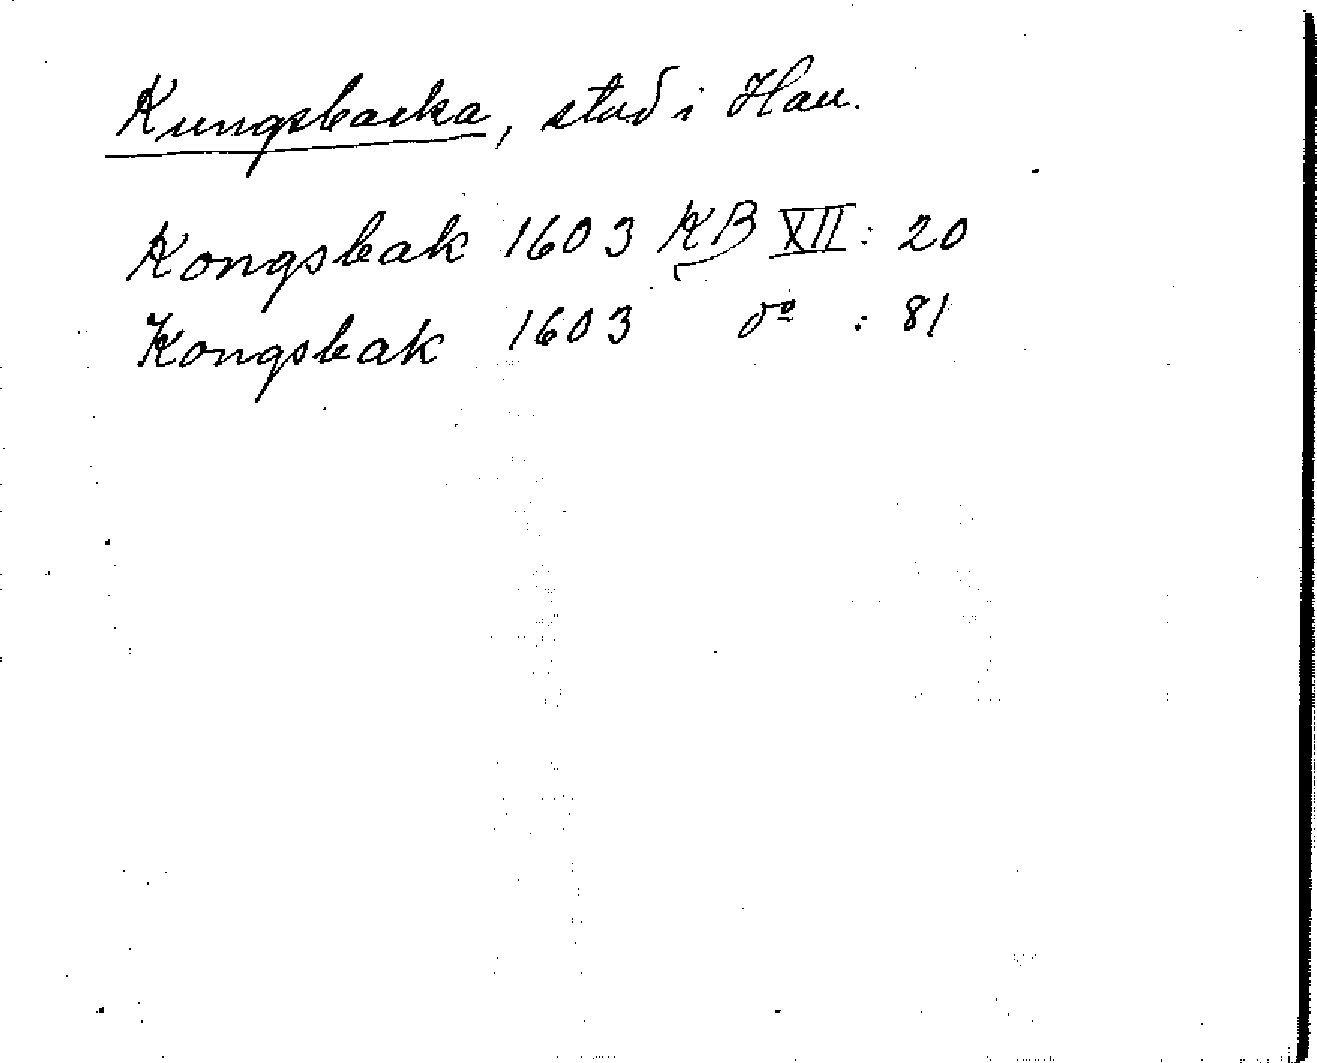 Kungsbacka, stad i Hall.
Kongsbak 1603 KB XII: 20
Kongsbak 1603 do : 81